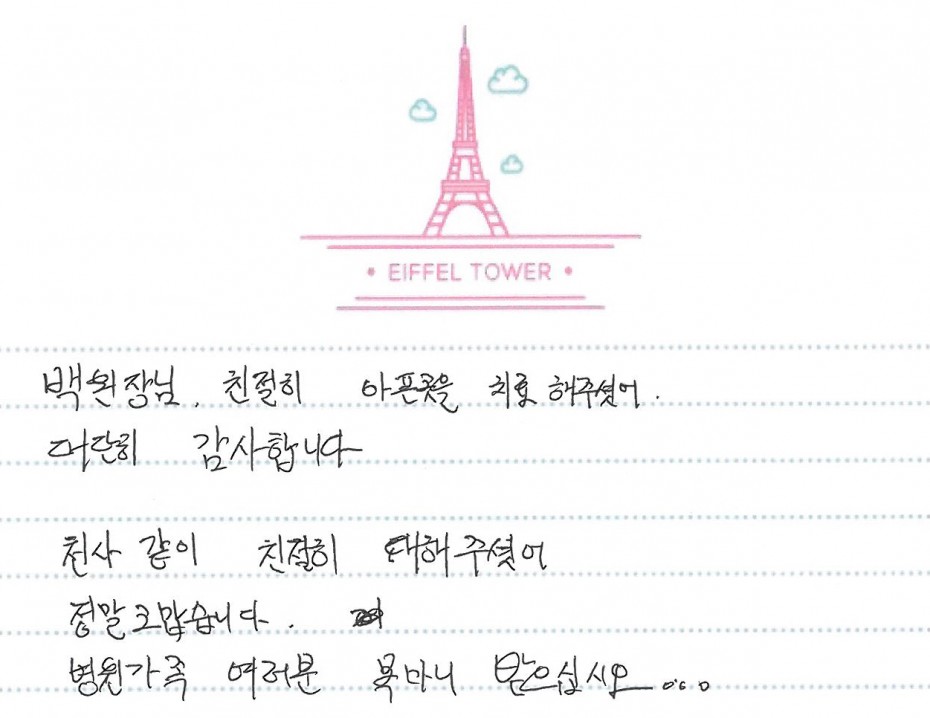 • EIFFEL TOWER •
백원장님, 친절히 아픈곳을 치료 해주셨어.
대단히 감사합니다
천사 같이 친절히 대해 주셨어
정말 고맙습니다.
병원가족 여러분 복마니 받으십시오...